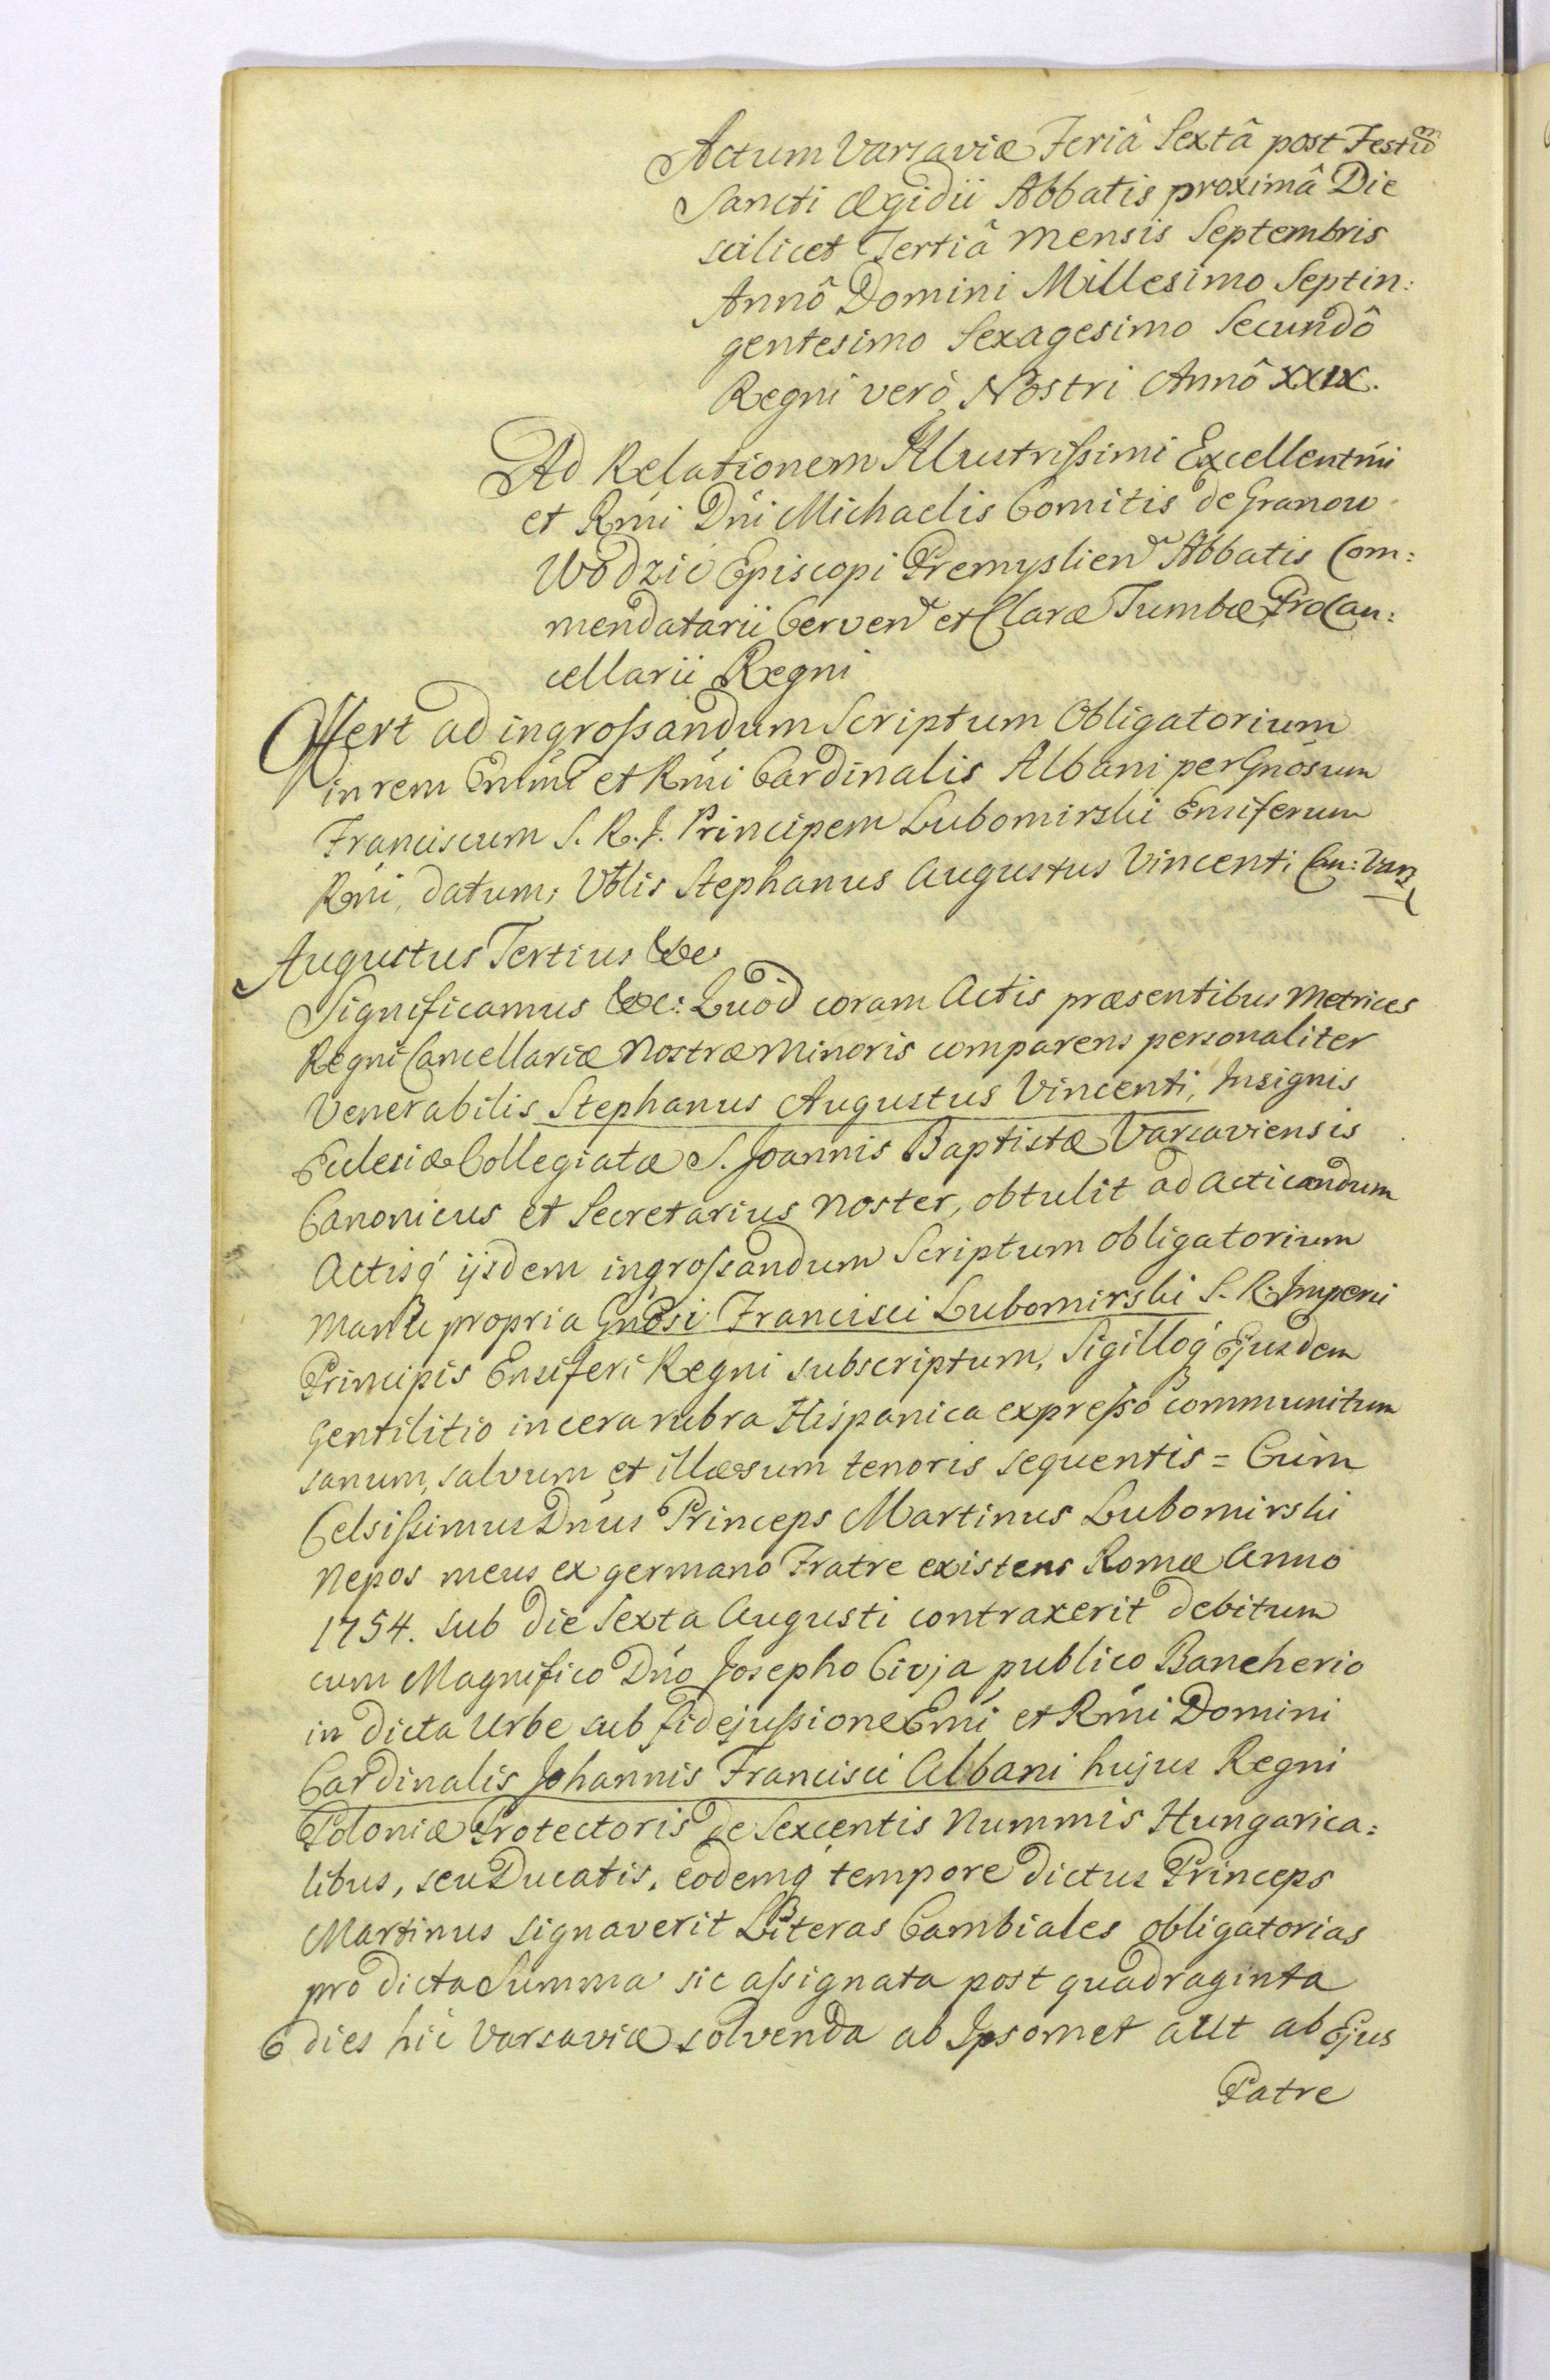 Actum Varsaviæ Feriâ Sextâ post Festũ
Sancti Ægidii Abbatis proximâ Die
scilicet Tertiâ mensis Septembris
Annô Domini Millesimo Septin:
gentesimo Sexagesimo Secundô
Regni verò Nostri Annô XXIX.
Ad Relationem Illustrissimi Excellentm̃i
et Rm̃i Dñi Michaelis Comitis de Granow
Wodzic Episcopi Premyslien Abbatis Com:
mendatarii Cerven et Claræ Tumbæ ProCan:
cellarii Regni
Offert ad ingrossandum Scriptum Obligatorium
in rem Emm̃i et Rm̃i Cardinalis Albani per Gnõsum
Franciscum S. R. I. Principem Lubomirski Ensiferum
Rñi, datum, Vblis Stephanus Augustus Vincenti Can: Vars
Augustus Tertius &c.
Significamus &c: Quod coram Actis præsentibus Metrices
Regni Cancellariæ Nostræ Minoris comparens personaliter
Venerabilis Stephanus Augustus Vincenti, Insignis
Eclesiæ Collegiatæ S. Joannis Baptistæ Varsaviensis
Canonicus et Secretarius Noster, obtulit ad acticandum
Actisq́ ijsdem ingrossandum Scriptum obligatorium
manu propria Gnõsi Francisci Lubomirski S. R. Imperii
Principis Ensiferi Regni subscriptum, Sigilloq́ Ejusdem
Gentilitio in cera rubra Hispanica expresso communitum
sanum, salvum et illæsum tenoris sequentis = Cùm
Celsissimus Dñus Princeps Martinus Lubomirski
Nepos meus ex germano Fratre existens Romæ Anno
1754. sub die sexta Augusti contraxerit debitum
cum Magnifico Dño Josepho Civja publico Bancherio
in dicta Urbe sub fidejussione Em̃i et Rm̃i Domini
Cardinalis Johannis Francisci Albani hujus Regni
Poloniæ Protectoris de Sexcentis Nummis Hungarica:
libus, seu Ducatis, eodemq́ tempore dictus Princeps
Martinus signaverit Literas Cambiales obligatorias
pro dicta Summa sic assignata post quadraginta
dies hic Varsaviæ solvenda ab Ipsomet aut ab Ejus
Patre